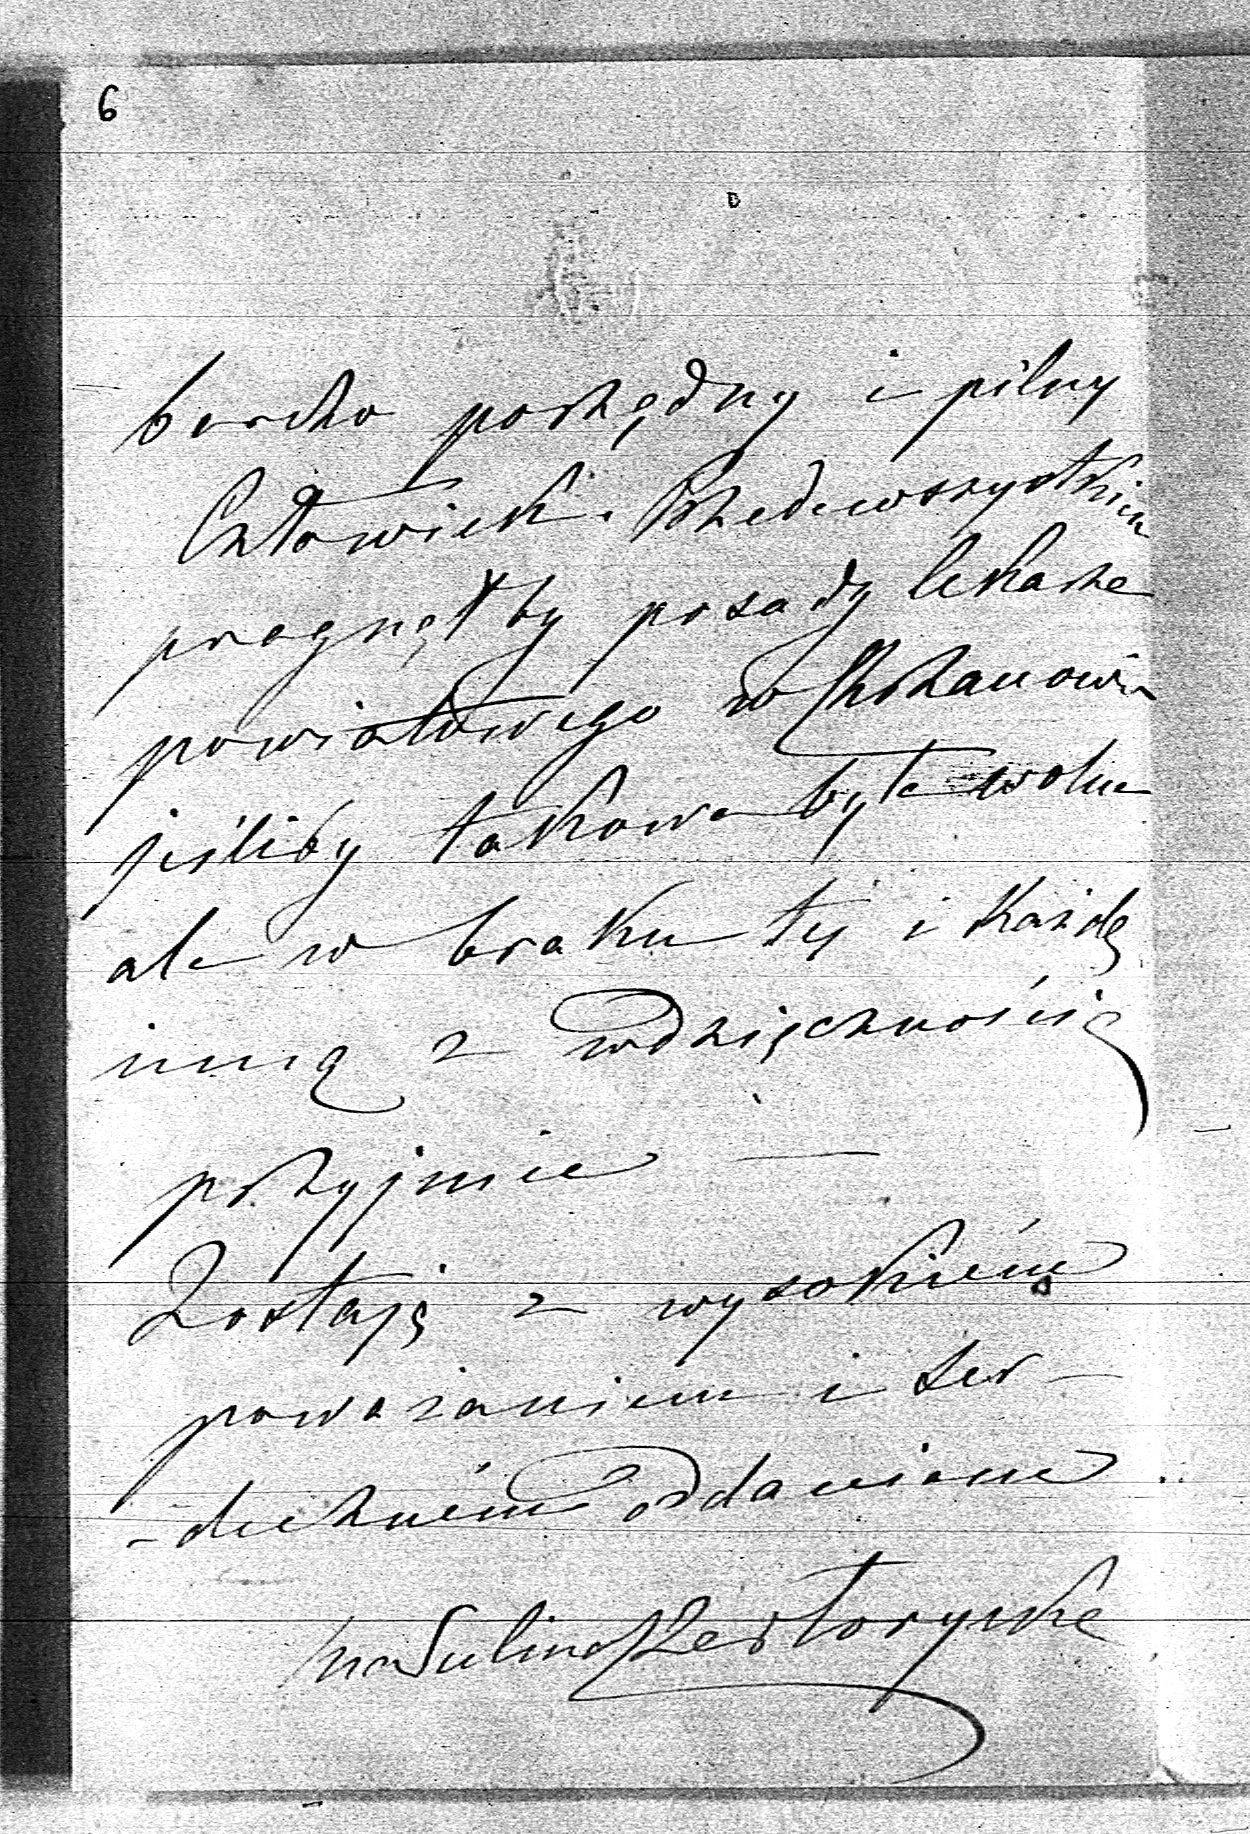 6
bardzo porządny i pilny
Człowiek. Przedewszystkiem
pragnąłby posady lekarza
powiatowego w Chrzanowie
jeśliby takowa była wolna
ale w braku tej i każdą
inną z wdzięcznością
przyjmie —
Zostaję z wysokiém
poważaniem i ser-
-deczném oddaniem
Czartoryska